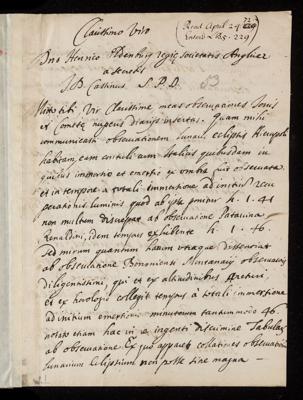 Clarissimo Viro
Read April 24. 72
Entered LB. 5. 229
Dno Henrico Oldenburg regiæ societatis Angliæ
a secretis
JD Cassinus S. P. D. 53
Mitto tibi Vir Clarissime meas observationes Jovis
et Cometæ nuperis diariis insertas. Quam mihi
communicasti observationem Lunaris eclipsis
habitam, cum Italicis quibusdam in
quibus immersio et emersio ex umbra fuit observata
et in tempore a totali immersione ad initium recu
peratis luminis quod ab ipsis ponitur h. 1. 41
non multum discrepat ab observatione Patavina
Renaldini, idem tempus exhibente h. 1. 46.
Sed mirum quantum harum utraque dissentiat
ab observatione Bononiensi Montanarii observatoris
diligentissimi, qui et ex altitudinibus
et ex horologio collegit tempus a totali immersione
ad initium emersionis minutorum tantummodo 46.
etiam hac in re ingenti discrimine Tabulas
ab observatione Ex quo apparet collationes observationum
Lunarium Eclipsium non posse sine magna